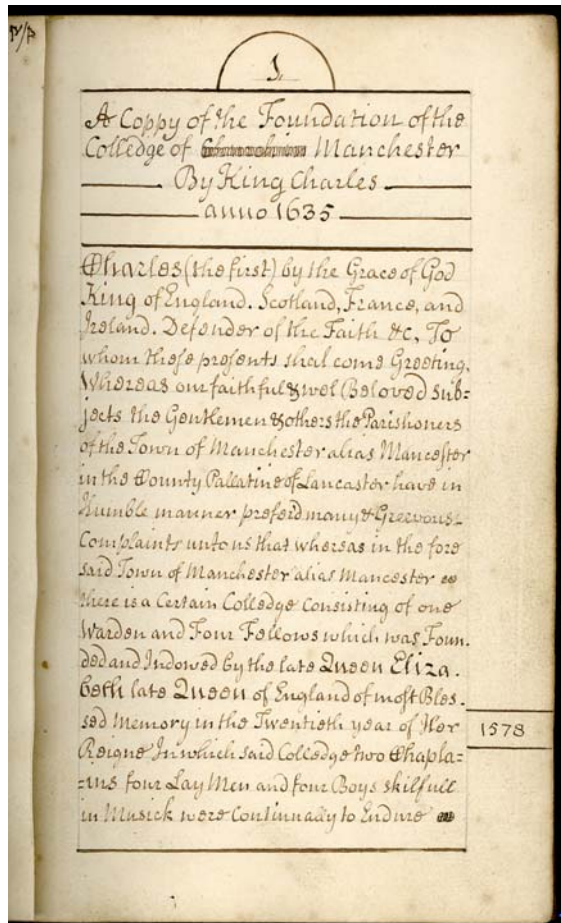 1.
A Coppy of the Foundation of the
Colledge of Manchester
By King Charles
anno 1635
Charles (the first) by the Grace of God
King of England. Scotland, France, and
Ireland. Defender of the Faith &c, To
whom these presents shal come Greeting.
Whereas our faithful & wel (Beloved sub=
jects the Gentlemen & others the Parishoners
of the Town of Manchester alias Mancester
in the County Pallatine of Lancaster have in
Humble manner preferd many & Greevous
Complaints unto us that whereas in the fore
said Town of Manchester alias Mancester
there is a Certain Colledge Consisting of one
Warden and Four Fellows which was Foun.
ded and Indowed by the late Queen Eliza.
beth late Queen of England of most Bles.
sed Memory in the Twentieth year of Her
1578
Reigne In which said Colledge two Chapla=
=ins four Lay Men and four Boys skilfull
in Musick were Continually to Endure